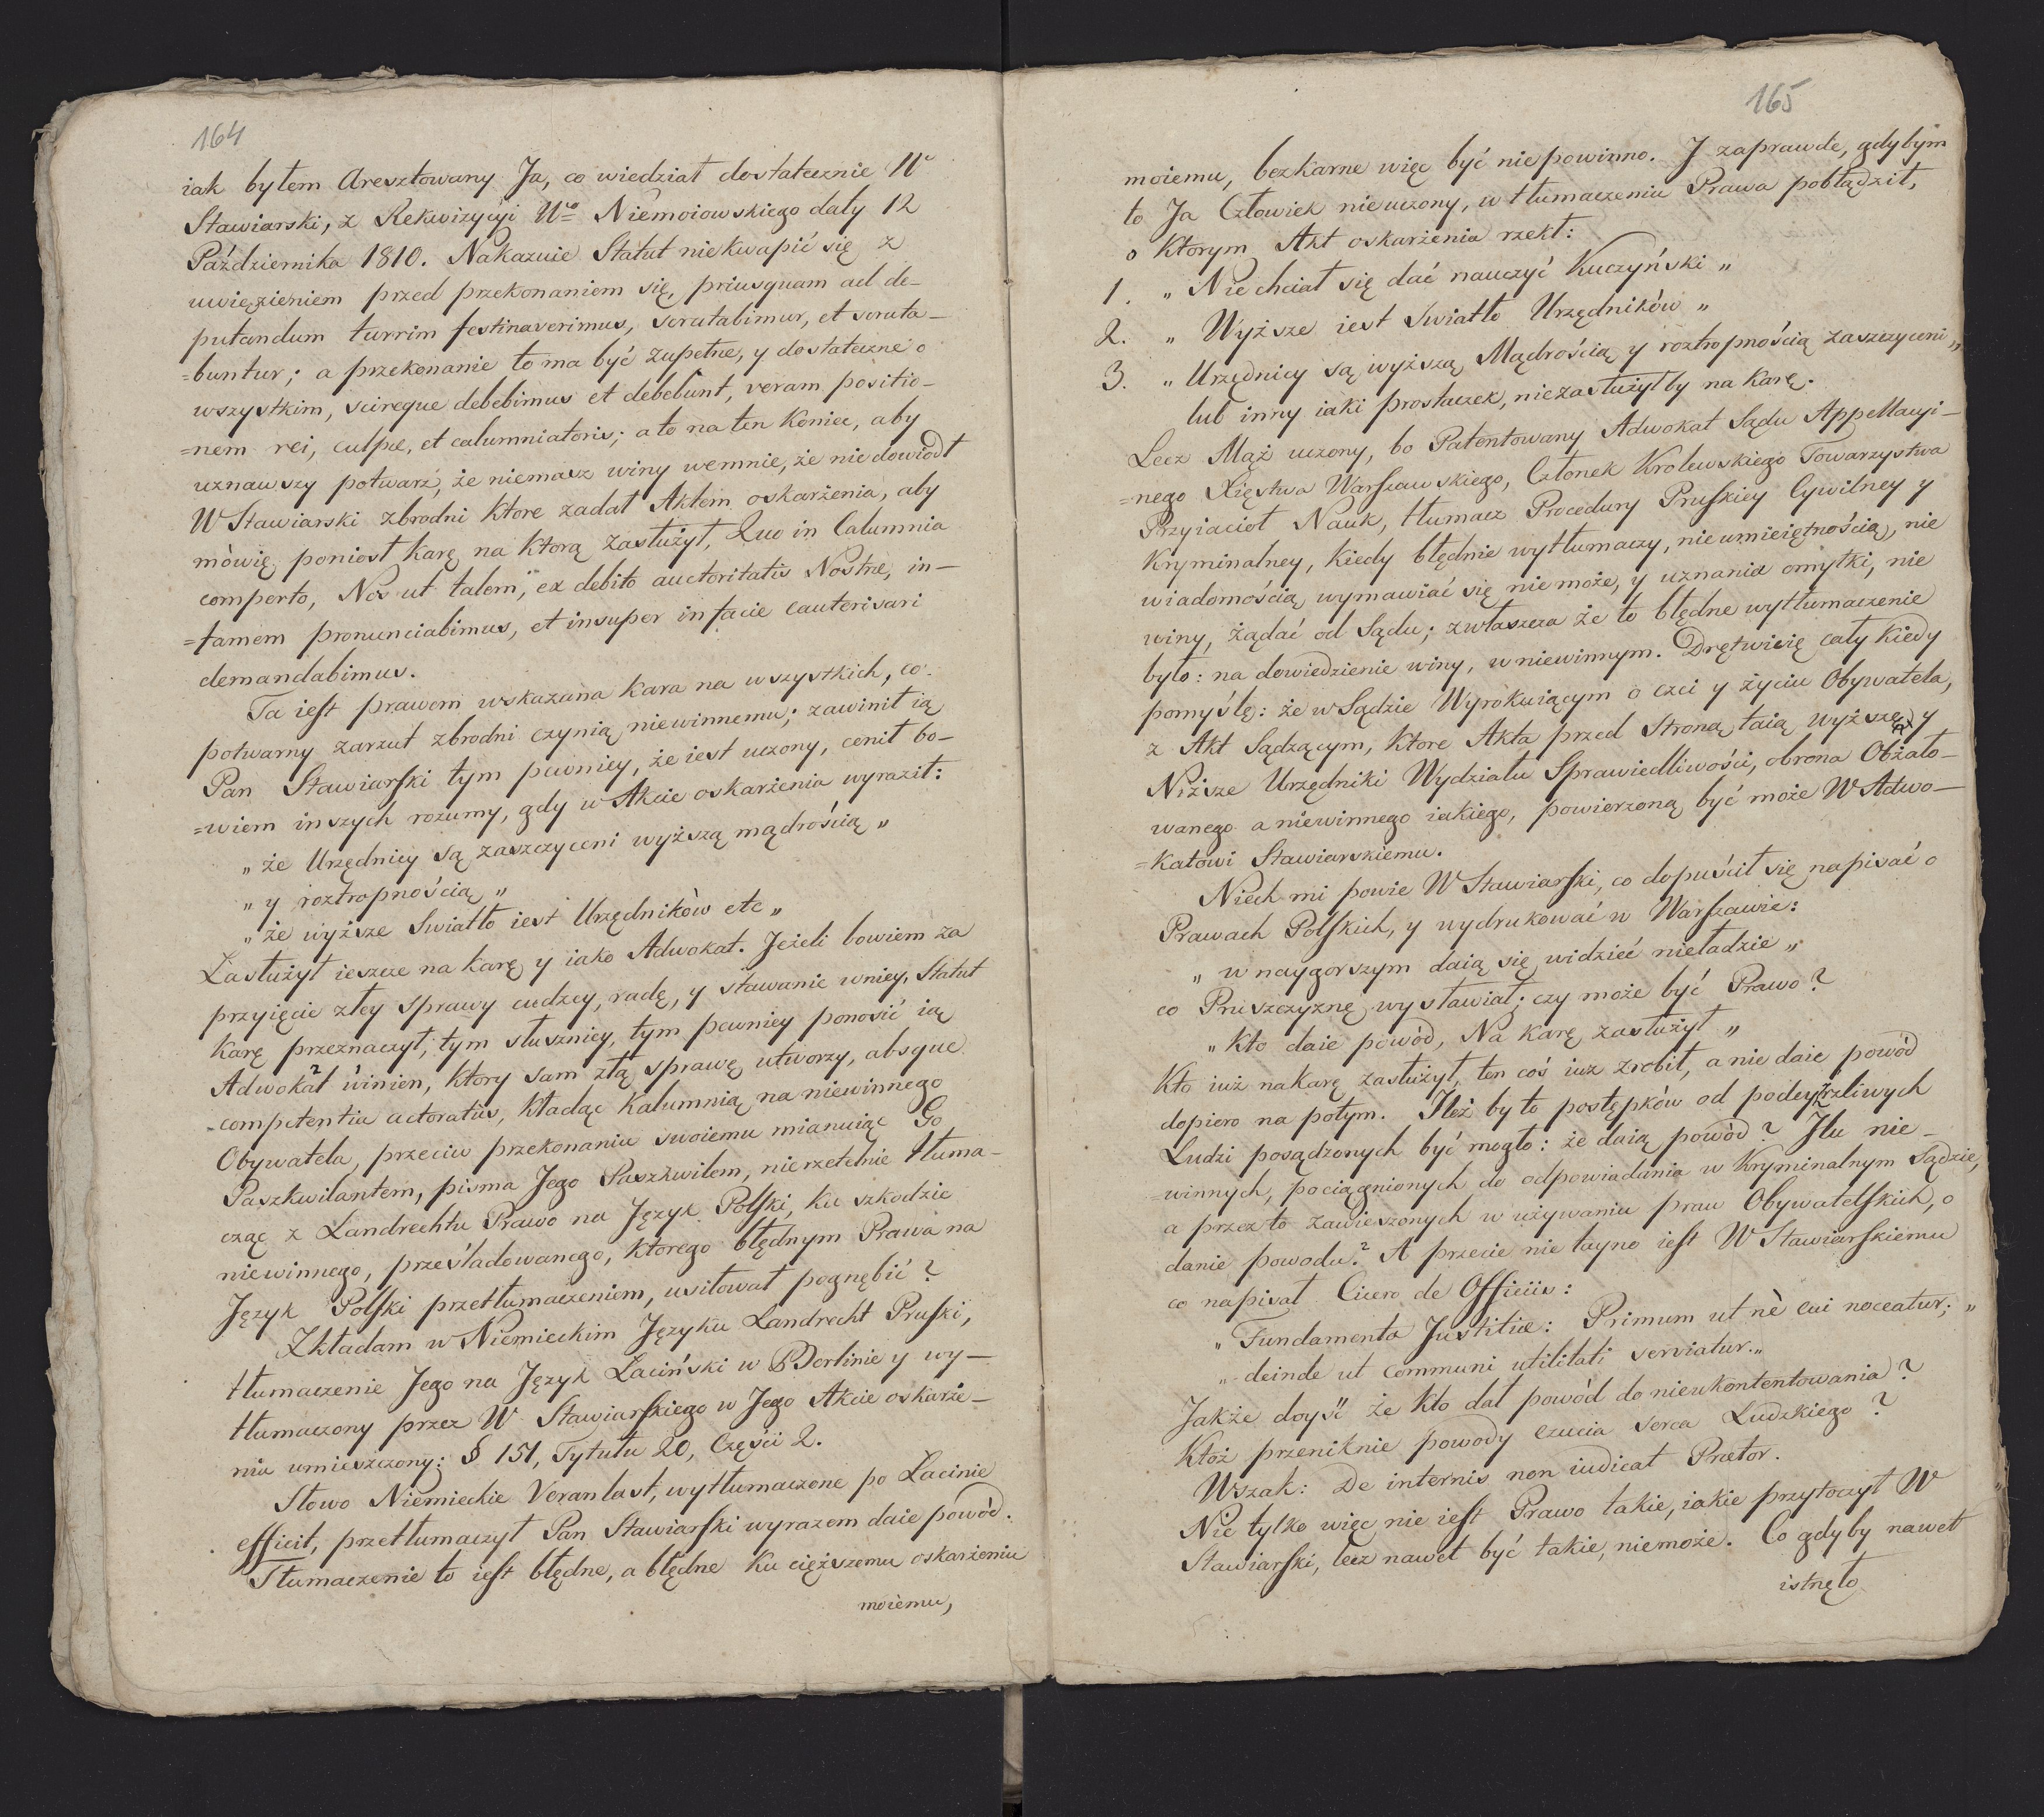 164
iak byłem Aresztowany Ja, co wiedział dostatecznie Wc
Stawiarski, z Rekwizycyi Wo Niemoiowskiego daty 12
Października 1810. Nakazuie Statut nie kwapić się z
uwięzieniem przed przekonaniem się, priusquam ad de-
putandum turrim festinaverimus, scrutabimur, et scruta-
=buntur; a przekonanie to ma być zupełne, y dostateczne o
wszystkim, scireque debebimus et debebunt, veram positio-
=nem rei, culpæ, et calumniatoris; a to na ten koniec, aby
uznawszy potwarz, że niemasz winy wemnie, że nie dowiodł
W Stawiarski zbrodni ktore zadał Aktem oskarżenia, aby
mówię, poniosł karę, na ktorą zasłużył, Quo in Calumnia
comperto, Nos ut talem, ex debito auctoritatis Nostræ, in-
=famem pronunciabimus, et insuper in facie cauterisari
demandabimus.
Ta iest prawem wskazana kara na wszystkich, co
potwarny zarzut zbrodni czynią niewinnemu; zawinił ią
Pan Stawiarski tym pewniey, że iest uczony, cenił bo-
=wiem inszych rozumy, gdy w Akcie oskarżenia wyraził:
„ że Urzędnicy są zaszczyceni wyższą mądrością „
„ y roztropnością „
„ że wyższe Swiatło iest Urzędników etc „
Zasłużył ieszcze na karę y iako Adwokat. Jeżeli bowiem za
przyięcie złey sprawy cudzey, radę, y stawanie w niey, Statut
karę przeznaczył, tym słuszniey, tym pewniey ponosić ią
Adwokat winien, ktory sam złą sprawę utworzy, absque
=competentia actoratûs, kładąc kalumnią na niewinnego
Obywatela, przeciw przekonaniu swoiemu mianuiąc Go
Paszkwilantem, pisma Jego Paszkwilem, nierzetelnie tłuma-
cząc z Landrechtu Prawo na Język Polski, ku szkodzie
niewinnego, prześladowanego, ktorego błędnym Prawa na
Język Polski przetłumaczeniem, usiłował pognębić?
Zkładam w Niemieckim Języku Landrecht Pruski,
tłumaczenie Jego na Język Łaciński w Berlinie y wy-
tłumaczony przez W Stawiarskiego w Jego Akcie oskarże-
niu umieszczony: § 151, Tytułu 20, Części 2.
Słowo Niemieckie Veranlast, wytłumaczone po Łacinie
efficit, przetłumaczył Pan Stawiarski wyrazem daie powód.
Tłumaczenie to iest błędne, a błędne ku cięższemu oskarżeniu
moiemu,
165
moiemu, bezkarne więc być niepowinno. J zaprawde, gdybym
to Ja Człowiek nieuczony, w tłumaczeniu Prawa pobłądził,
o ktorym Akt oskarżenia rzekł:
1. „ Nie chciał się dać nauczyć Kuczyński „
2. „ Wyższe iest Swiatło Urzędników „
3. „ Urzędnicy są wyższą Mądrością y roztropnością zaszczyceni „
lub inny iaki prostaczek, niezasłużyłby na Karę.
Lecz Mąż uczony, bo Patentowany Adwokat Sądu Appellacyi-
=nego Xięstwa Warszawskiego, Członek Krolewskiego Towarzystwa
Przyiacioł Nauk, tłumacz Procedury Pruskiey Cywilney y
Kryminalney, kiedy błędnie wytłumaczy, nieumieiętnością, nie
wiadomością wymawiać się nie może, y uznania omyłki, nie
winy, żądać od Sądu; zwłaszcza że to błędne wytłumaczenie
było: na dowiedzienie winy, w niewinnym. Drętwieię cały kiedy
pomyślę: że w Sądzie Wyrokuiącym o czci y życiu Obywatela,
z Akt Sądzącym, ktore Akta przed Stroną taią wyższe y
Niższe Urzędniki Wydziału Sprawiedliwości, obrona Obżało-
wanego a niewinnego iakiego, powierzoną być może W Adwo-
=katowi Stawiarskiemu.
Niech mi powie W Stawiarski, co dopuścił się napisać o
Prawach Polskich, y wydrukować w Warszawie:
„ w naygorszym daią się widzieć nieładzie „
co Pruszczyznę wysławiał; czy może być Prawo?
„ Kto daie powód, Na karę zasłużył „
Kto iuż na karę zasłużył, ten coś iuż zrobił, a nie daie powód
dopiero na potym. Ileż by to postępków od podeyźrzliwych
Ludzi posądzonych być mogło: że daią powód? Ilu nie-
=winnych, pociągnionych do odpowiadania w Kryminalnym Sądzie,
a przez to zawieszonych w używaniu praw Obywatelskich, o
danie powodu? A przecie nie tayno iest W Stawiarskiemu
co napisał Cicero de Officiis:
„ Fundamenta Justitiæ: Primum ut nè cui noceatur; „
„ deinde ut communi utilitati serviatur. „
Jakże doyść że kto dał powód do nieukontentowania?
Ktoż przeniknie powody czucia serca Ludzkiego?
Wszak: De internis non iudicat Prætor.
Nie tylko więc nie iest Prawo takie, iakie przytoczył W
Stawiarski, lecz nawet być takie, niemoże. Co gdyby nawet
istnęło